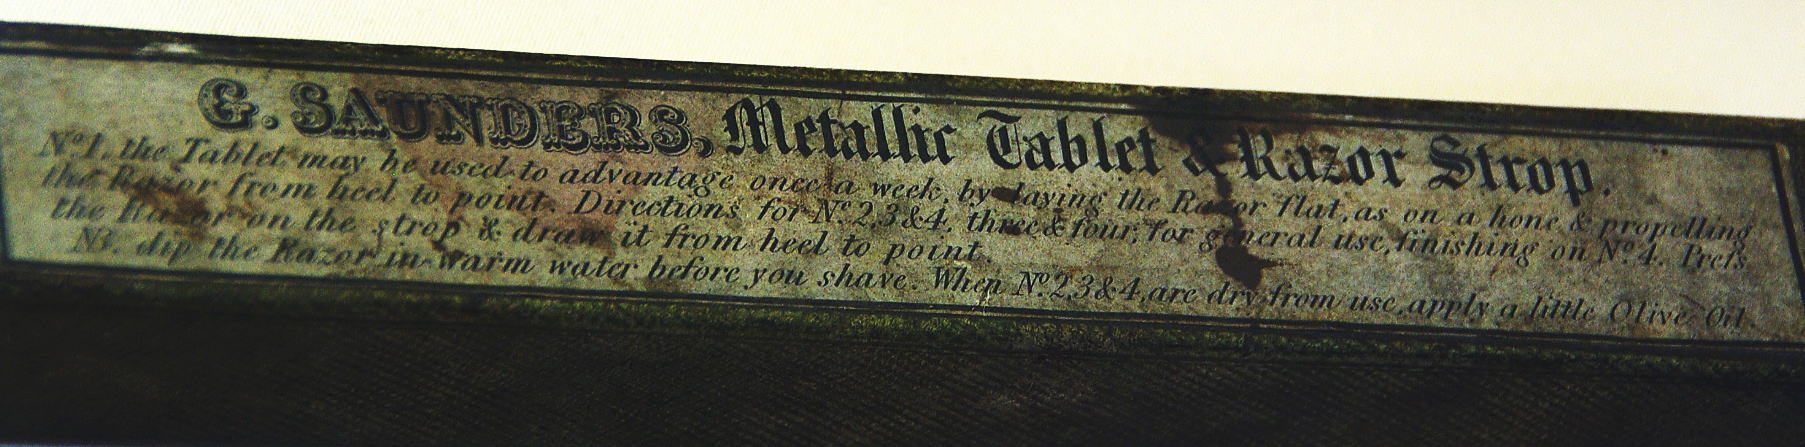 G. SAUNDERS, Metallic Tablet & Razor Strop.
Nº1, the Tablet may be used to advantage once a week, by laying the Razor flat, as on a hone & propelling
the Razor from heel to point. Directions for Nº 2,3&4, three & four, for general use, finishing on Nº 4. Preſs
the Razor on the strop & draw it from heel to point.
NB. dip the Razor in warm water before you shave. When Nº 2,3&4, are dry from use, apply a little Olive Oil.